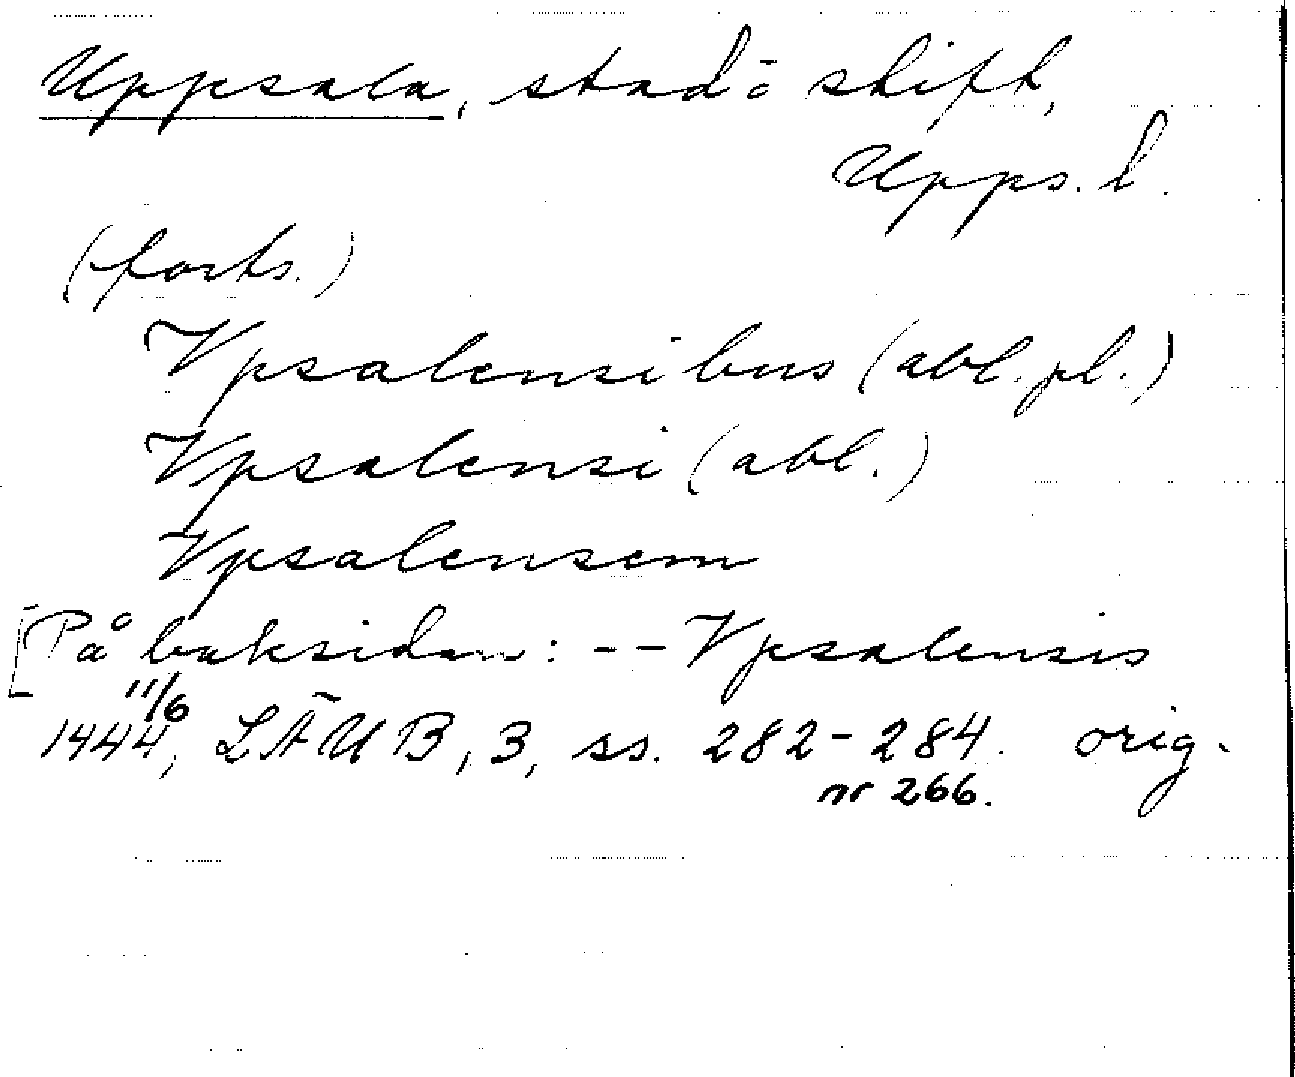 Uppsala, stad o stift,
Upps. l.
(forts.)
Vpsalensibus (abl. pl.)
Vpsalensi (abl.)
Vpsalensem
[På baksidan: -- Vpsalensis
11/6
1444, LÄUB, 3, ss. 282-284. orig.
nr 266.